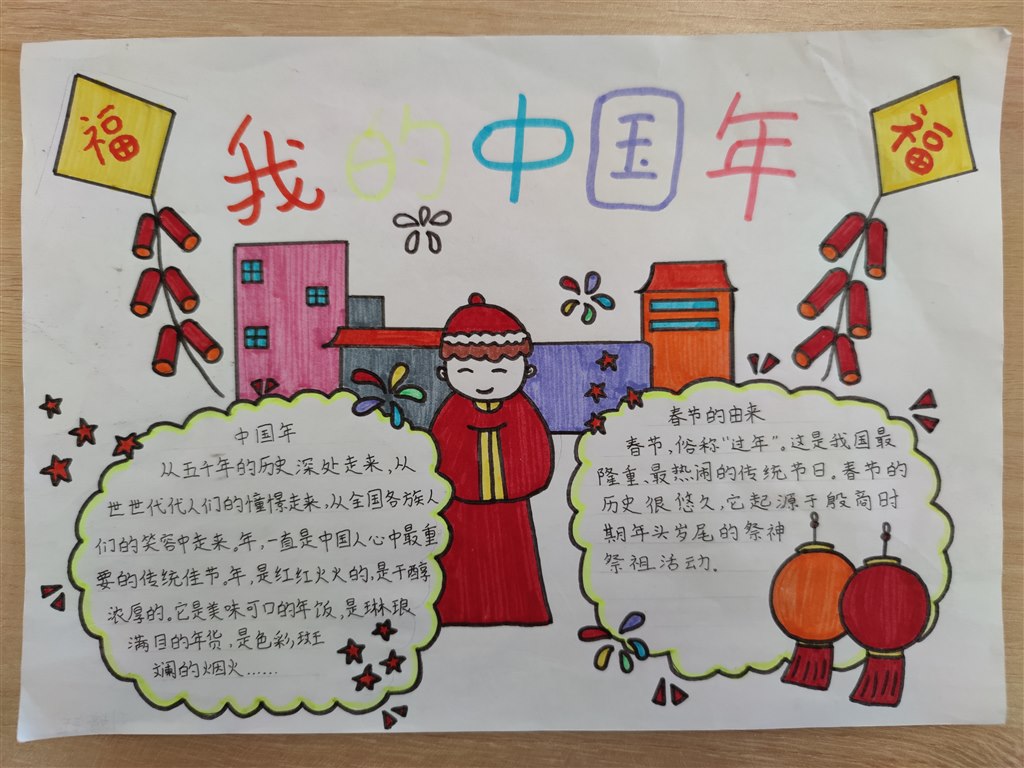 福
我的中国年
福
中国年
从五千年的历史深处走来,从
世世代代人们的憧憬走来,从全国各族人
们的笑容中走来。年,一直是中国人心中最重
要的传统佳节。年,是红红火火的,是干醇
浓厚的。它是美味可口的年饭,是琳琅
满目的年货,是色彩,斑
斓的烟火……
春节的由来
春节,俗称“过年”。这是我国最
隆重、最热闹的传统节日。春节的
历史很悠久,它起源于殷商时
期年头岁尾的祭神
祭祖活动。